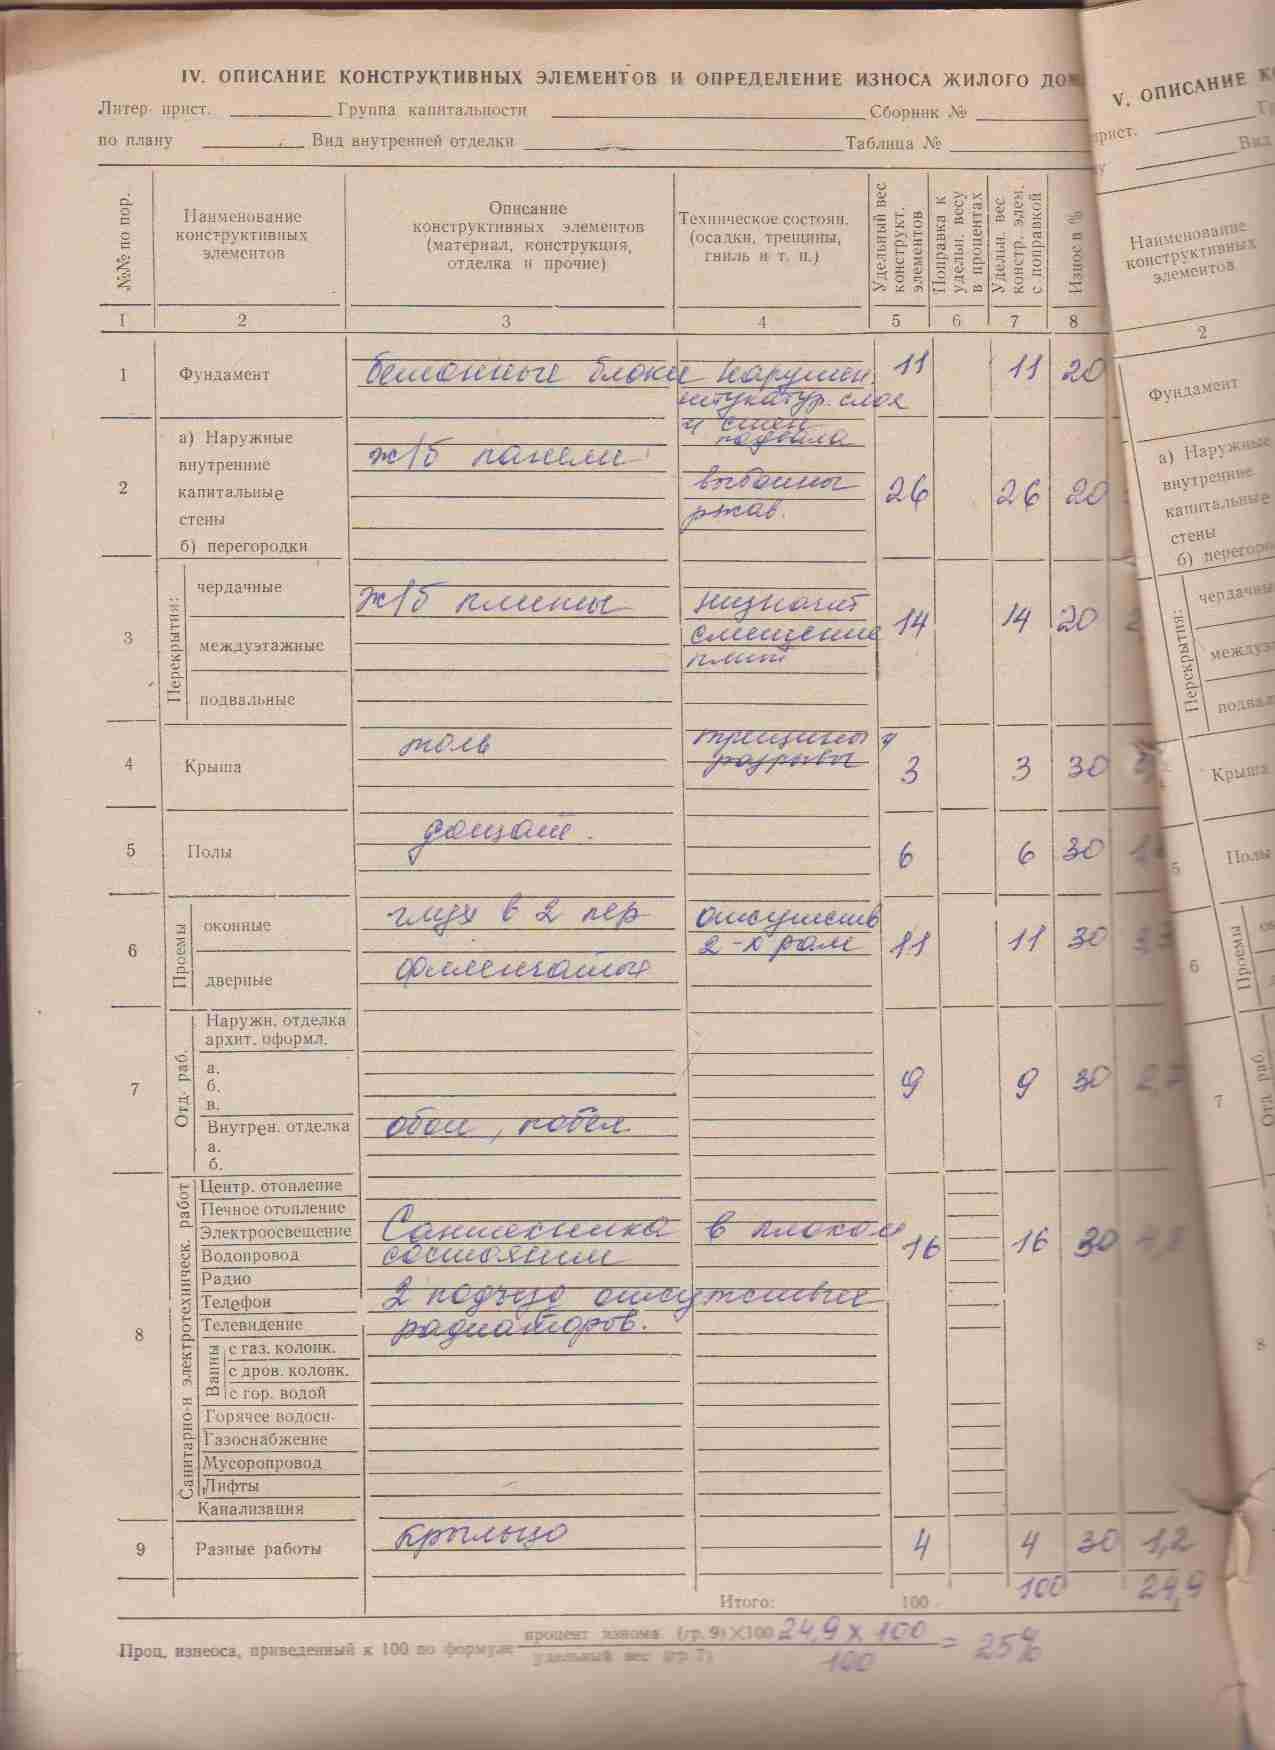 IV. ОПИСАНИЕ КОНСТРУКТИВНЫХ ЭЛЕМЕНТОВ И ОПРЕДЕЛЕНИЕ ИЗНОСА ЖИЛОГО ДОМ
Литер- прист. Группа капитальности Сборник №
по плану Вид внутренней отделки Таблица №
№№ по пор.
Наименование конструктивных элементов
Описание конструктивных элементов (материал, конструкция, отделка и прочие)
Техническое состоян. (осадки, трещины, гниль и т. п.)
Удельный вес конструкт. элементов
Поправка к удельн. весу в процентах
Удельн. вес констр. элем. с поправкой
Износ в %
1 2 3 4 5 6 7 8
1 Фундамент бетонные блоки нарушен. 11 11 20
штукатур. слоя
и стен
подвала
2 а) Наружные
внутренние ж/б панели выбоины 26 26 20
капитальные ржав.
стены
б) перегородки
3 Перекрытия:
чердачные ж/б плиты незначит 14 14 20
междуэтажные смещение
плит
подвальные
4 Крыша толь трещины и 3 3 30
разрывы
5 Полы дощат. 6 6 30
6 Проемы
оконные глух в 2 пер отсутств 11 11 30
2-х рам
дверные филенчатые
7 Отд. раб.
Наружн. отделка
архит. оформл.
а.
б.
в.
9 9 30
Внутрен. отделка обои, побел
а.
б.
8 Санитарно-и электротехническ. работ
Центр. отопление
Печное отопление
Электроосвещение Сантехника в плохом 16 16 30
Водопровод состоянии
Радио
Телефон 2 подъезд отсутствие
Телевидение радиаторов.
Ванны
с газ. колонк.
с дров. колонк.
с гор. водой
Горячее водосн-
Газоснабжение
Мусоропровод
Лифты
Канализация
9 Разные работы крыльцо 4 4 30 1,2
Итого: 100 100 24,9
Проц. износа, приведенный к 100 по формуле процент износа (гр. 9)×100 24,9 х 100 = 25%
удельный вес (гр 7) 100
V. ОПИСАНИЕ
прист.
Вид
Наименование
конструктивных
элементов
2
Фундамент
а) Наружные
внутренние
капитальные
стены
Перекрытия:
Крыша
5 Полы
6 Проемы
7 Отд. раб.
8